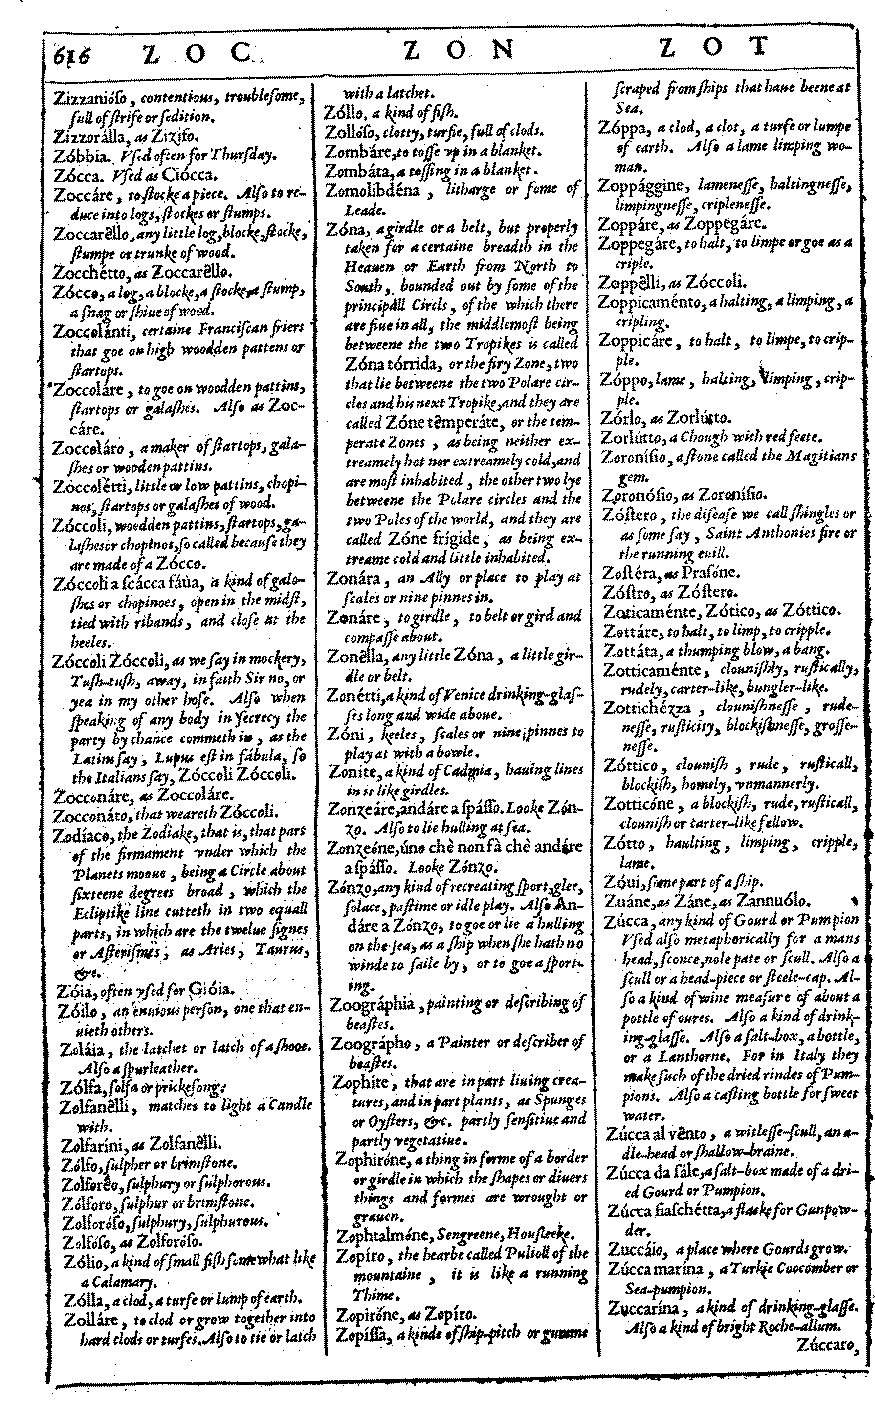 616 ZOC ZON ZOT
Zizzanióſo, contentious, troubleſome,
full of ſtrife or ſedition.
Zizzorálla, as Zizifo.
Zóbbia. Vſed often for Thurſday.
Zócca. Vſed as Ciócca.
Zoccáre, to ſtocke a piece. Alſo to re-
duce into logs, ſtockes or ſtumps.
Zoccarêllo, any little log, blocke, ſtocke,
ſtumpe or trunke of wood.
Zocchétto, as Zoccarêllo.
Zócco, a log, a blocke, a ſtocke, a ſtump,
a ſnag or ſhiue of wood.
Zoccolánti, certaine Franciſcan friers
that goe on high woodden pattens or
ſtartops.
Zoccoláre, to goe on woodden pattins,
ſtartops or galaſhes. Alſo as Zoc-
cáre.
Zoccoláro, a maker of ſtartops, gala-
ſhes or wooden pattins.
Zoccolétti, little or low pattins, chopi-
nos, ſtartops or galaſhes of wood.
Zóccoli, woodden pattins, ſtartops, ga-
laſhes or chopinos, ſo called becauſe they
are made of a Zócco.
Zóccoli a ſcácca fáua, a kind of galo-
ſhes or chopinoes, open in the midſt,
tied with ribands, and cloſe at the
heeles.
Zóccoli Zóccoli, as we ſay in mockery,
Tuſh-tuſh, away, in faith Sir no, or
yea in my other hoſe. Alſo when
ſpeaking of any body in ſecrecy the
party by chance commeth in, as the
Latins ſay, Lupus eſt in fábula, ſo
the Italians ſay, Zóccoli Zóccoli.
Zocconáre, as Zoccoláre.
Zocconáto, that weareth Zóccoli.
Zodíaco, the Zodiake, that is, that part
of the firmament vnder which the
Planets mooue, being a Circle about
ſixteene degrees broad, which the
Ecliptike line cutteth in two equall
parts, in which are the twelue ſignes
or Aſteriſmes, as Aries, Taurus,
&c.
Zóia, often vſed for Gióia.
Zóilo, an enuious perſon, one that en-
uieth others.
Zoláia, the latchet or latch of a ſhooe.
Alſo a ſpurleather.
Zólfa, ſolfa or prickeſong.
Zolfanêlli, matches to light a Candle
with.
Zolfaríni, as Zolfanêlli.
Zólfo, ſulpher or brimſtone.
Zolforêo, ſulphury or ſulphorous.
Zólforo, ſulphur or brimſtone.
Zolforóſo, ſulphury, ſulphurous.
Zolfóſo, as Zolforóſo.
Zólio, a kind of ſmall fiſh ſomewhat like
a Calamary.
Zólla, a clod, a turfe or lump of earth.
Zolláre, to clod or grow together into
hard clods or turfes. Alſo to tie or latch
with a latchet.
Zóllo, a kind of fiſh.
Zollóſo, clotty, turfie, full of clods.
Zombáre, to toſſe vp in a blanket.
Zombáta, a toſſing in a blanket.
Zomolibdéna, litharge or fome of
Leade.
Zóna, a girdle or a belt, but properly
taken for a certaine breadth in the
Heauen or Earth from North to
South, bounded out by ſome of the
principall Circls, of the which there
are fiue in all, the middlemoſt being
betweene the two Tropikes is called
Zóna tórrida, or the firy Zone, two
that lie betweene the two Polare cir-
cles and his next Tropike, and they are
called Zóne têmperáte, or the tem-
perate Zones, as being neither ex-
treamely hot nor extreamely cold, and
are moſt inhabited, the other two lye
betweene the Polare circles and the
two Poles of the world, and they are
called Zóne frígide, as being ex-
treame cold and little inhabited.
Zonára, an Ally or place to play at
ſcales or nine pinnes in.
Zonáre, to girdle, to belt or gird and
compaſſe about.
Zonêlla, any little Zóna, a little gir-
dle or belt.
Zonétti, a kind of Venice drinking-glaſ-
ſes long and wide aboue.
Zóni, keeles, ſcales or nine pinnes to
play at with a bowle.
Zonite, a kind of Cadmia, hauing lines
in it like girdles.
Zonzeáre, andáre a ſpáſſo. Looke Zón-
zo. Alſo to lie hulling at ſea.
Zonzeóne, úno chè non fà chè andáre
a ſpáſſo. Looke Zónzo.
Zónzo, any kind of recreating ſport, glee,
ſolace, paſtime or idle play. Alſo An-
dáre a Zónzo, to goe or lie a hulling
on the ſea, as a ſhip when ſhe hath no
winde to ſaile by, or to goe a ſport-
ing.
Zoográphia, painting or deſcribing of
beaſtes.
Zoográpho, a Painter or deſcriber of
beaſtes.
Zophite, that are in part liuing crea-
tures, and in part plants, as Spunges
or Oyſters, &c. partly ſenſitiue and
partly vegetatiue.
Zophiróne, a thing in forme of a border
or girdle in which the ſhapes or diuers
things and formes are wrought or
grauen.
Zophtalmóne, Sengreene, Houſleeke.
Zopíro, the hearbe called Pulioll of the
mountaine, it is like a running
Thime.
Zopiróne, as Zopíro.
Zopíſſa, a kinde of ſhip-pitch or gumme
ſcraped from ſhips that haue beene at
Sea.
Zóppa, a clod, a clot, a turfe or lumpe
of earth. Alſo a lame limping wo-
man.
Zoppággine, lameneſſe, haltingneſſe,
limpingneſſe, cripleneſſe.
Zoppáre, as Zoppegáre.
Zoppegáre, to halt, to limpe or goe as a
criple.
Zoppêlli, as Zóccoli.
Zoppicaménto, a halting, a limping, a
cripling.
Zoppicáre, to halt, to limpe, to crip-
ple.
Zóppo, lame, halting, limping, crip-
ple.
Zórlo, as Zorlútto.
Zorlútto, a Chough with red feete.
Zoroníſio, a ſtone called the Magitians
gem.
Zoronóſio, as Zoroniſio.
Zóſtero, the diſeaſe we call ſhingles or
as ſome ſay, Saint Anthonies fire or
the running euill.
Zoſtéra, as Praſóne.
Zóſtro, as Zóſtero.
Zoticaménte, Zótico, as Zóttico.
Zottáre, to halt, to limp, to cripple.
Zottáta, a thumping blow, a bang.
Zotticaménte, clouniſhly, ruſtically,
rudely, carter-like, bungler-like.
Zottichézza, clouniſhneſſe, rude-
neſſe, ruſticity, blockiſhneſſe, groſſe-
neſſe.
Zóttico, clouniſh, rude, ruſticall,
blockiſh, homely, vnmannerly.
Zotticóne, a blockiſh, rude, ruſticall,
clouniſh or carter-like fellow.
Zótto, haulting, limping, cripple,
lame.
Zóui, ſome part of a ſhip.
Zuáne, as Záne, as Zannuólo.
Zúcca, any kind of Gourd or Pumpion
Vſed alſo metaphorically for a mans
head, ſconce, nole pate or ſcull. Alſo a
ſcull or a head-piece or ſteele-cap. Al-
ſo a kind of wine meaſure of about a
pottle of oures. Alſo a kind of drink-
ing-glaſſe. Alſo a ſalt-box, a bottle,
or a Lanthorne. For in Italy they
make ſuch of the dried rindes of Pum-
pions. Alſo a caſting bottle for ſweet
water.
Zúcca al vênto, a witleſſe-ſcull, an a-
dle-head or ſhallow-braine.
Zúcca da ſále, a ſalt-box made of a dri-
ed Gourd or Pumpion.
Zúcca fiaſchétta, a flaske for Gunpow-
der.
Zuccáio, a place where Gourds grow.
Zúcca marína, a Turkie Cucomber or
Sea-pumpion.
Zuccarína, a kind of drinking-glaſſe.
Alſo a kind of bright Roche-allum.
Zúccaro,